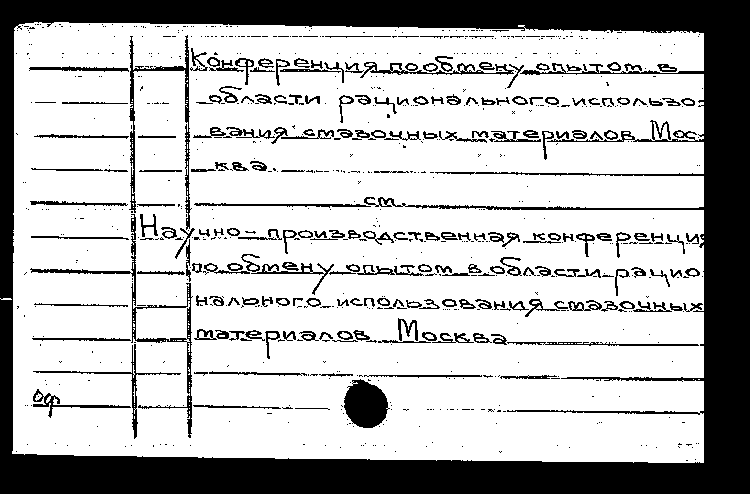 Конференция по обмену опытом в
области рационального использо-
вания смазочных материалов Мос-
ква.
см.
Научно-производственная конференция
по обмену опытом в области рацио
нального использования смазочных
материалов Москва
оф